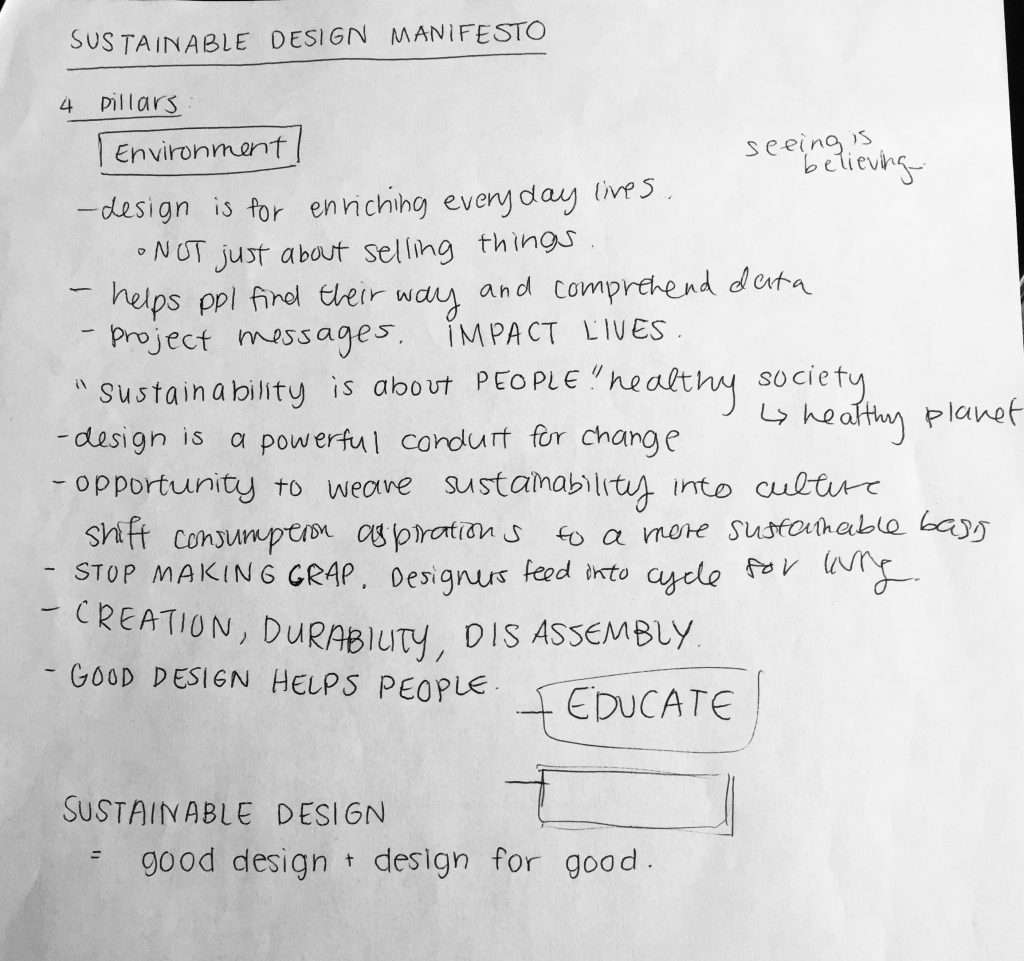 SUSTAINABLE DESIGN MANIFESTO
4 pillars:
Environment
seeing is
believing.
- design is for enriching everyday lives.
◦ NOT just about selling things.
- helps ppl find their way and comprehend data
- project messages. IMPACT LIVES.
"sustainability is about PEOPLE." healthy society
↳ healthy planet
- design is a powerful conduit for change
- opportunity to weave sustainability into culture
shift consumption aspirations to a more sustainable basis
- STOP MAKING CRAP. Designers feed into cycle for living.
- CREATION, DURABILITY, DISASSEMBLY.
- GOOD DESIGN HELPS PEOPLE.
EDUCATE
SUSTAINABLE DESIGN
= good design + design for good.